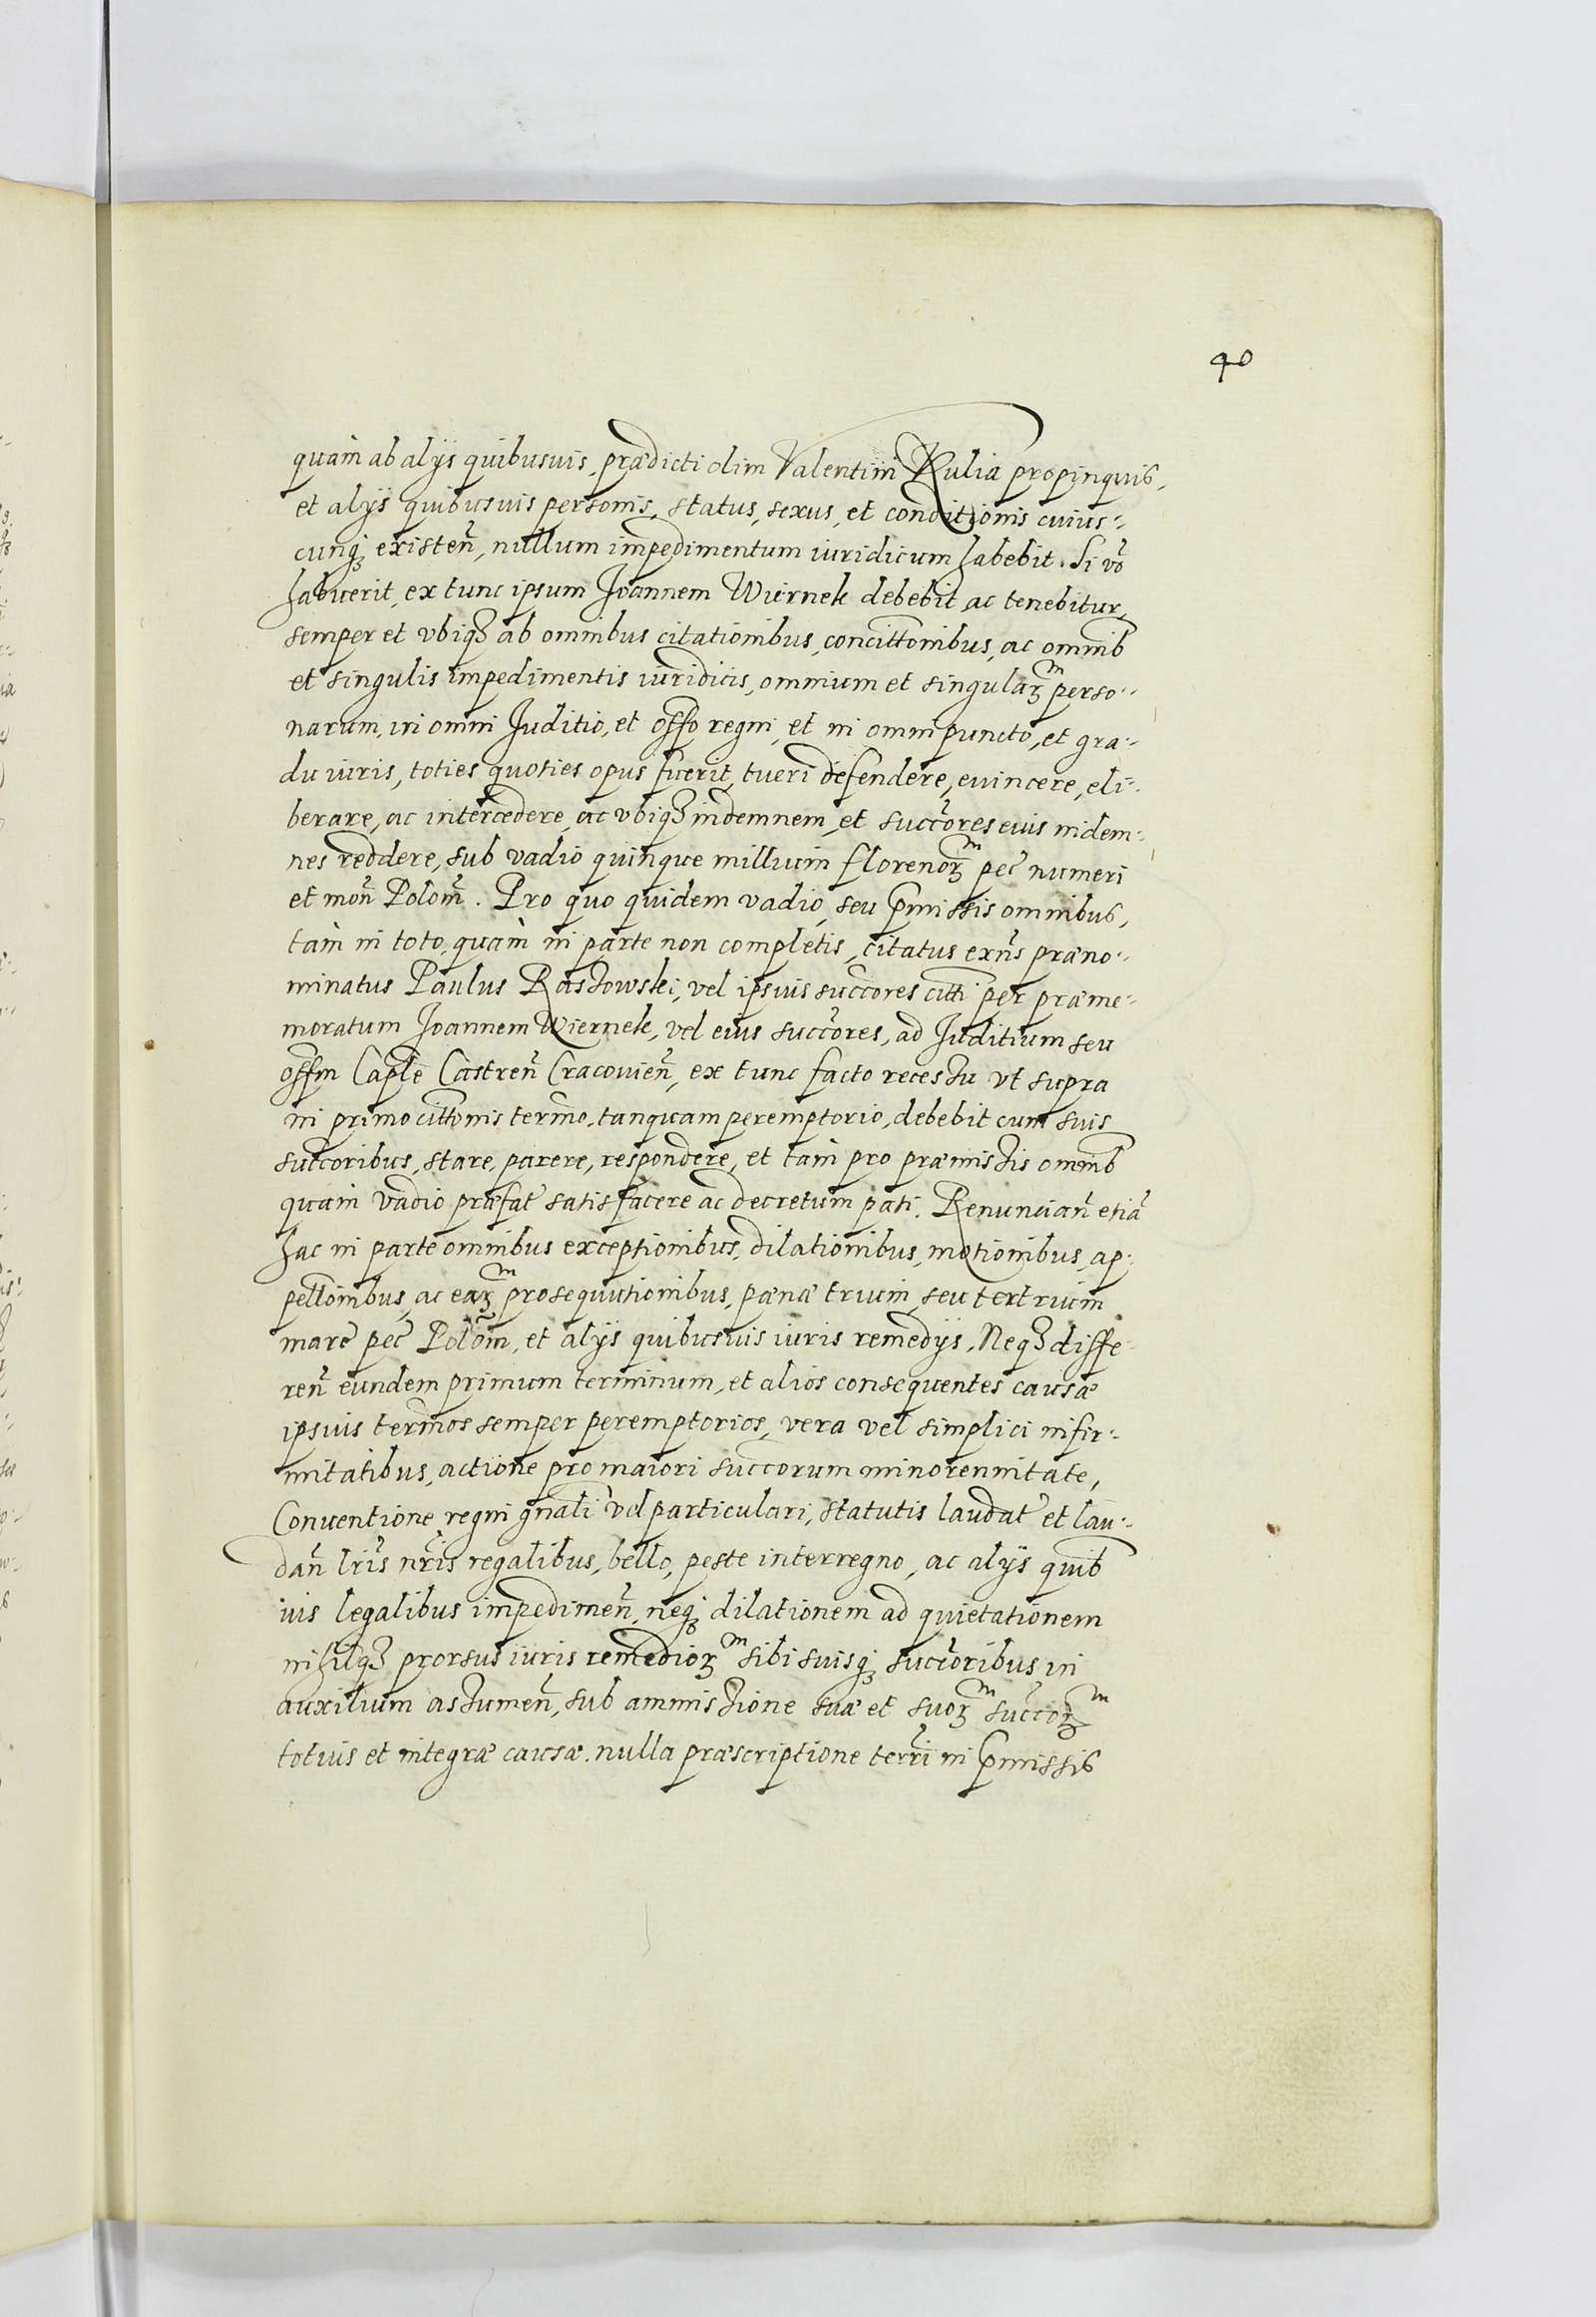 40
quàm ab alijs quibusuis, prædicti olim Valentini Kulia propinquis,
et alijs quibusuis personis, status, sexus, et conditionis cuius-
cunq; existeñ, nullum impedimentum iuridicum habebit. Si võ
habuerit, ex tunc ipsum Joannem Wiernek debebit, ac tenebitur,
semper et vbiq; ab omnibus citationibus, concittõnibus, ac omnib
et singulis impedimentis iuridicis, omnium et singularꝫm perso-
narum, in omni Juditio, et offo regni, et in omni puncto, et gra-
du iuris, toties quoties opus fuerit, tueri defendere, euincere, eli-
berare, ac intercedere, ac vbiq; indemnem, et succores eius indem-
nes reddere, sub vadio quinque millium florenorꝫm pec numeri
et moñ Poloñ. Pro quo quidem vadio, seu p̃missis omnibus,
tàm in toto, quàm in parte non completis, citatus exñs præno-
minatus Paulus Raszowski, vel ipsius succores citti per præme-
moratum Joannem Wiernek, vel eius succores, ad Juditium seu
offm Caple Castreñ Cracouieñ, ex tunc facto recessu vt supra
in primo cittõnis termõ, tanquam peremptorio, debebit cum suis
succoribus, stare, parere, respondere, et tàm pro præmissis omnib
quàm vadio præfat satisfacere ac decretum pati. Renunciañ etiã
hac in parte omnibus exceptionibus, dilationibus, motionibus, ap-
pellõnibus, ac earꝫm prosequutionibus, pænæ trium, seu ter trium
marc pec Polõm, et alijs quibusuis iuris remedijs. Neq; diffe-
reñ eundem primum terminum, et alios consequentes causæ
ipsius termõs semper peremptorios, vera vel simplici infir-
mitatibus, actione pro maiori succorum minorennitate,
Conuentione regni gñali vel particulari, statutis laudat et lau-
dañ lris nris regalibus, bello, peste interregno, ac alijs quib
uis legalibus impedimeñ, neq; dilationem ad quietationem
nihilq; prorsus iuris remediorꝫm sibi suisq; succoribus in
auxilium assumeñ, sub ammissione suæ et suorꝫm succorꝫm
totius et integræ causæ. nulla præscriptione terri in p̃missis